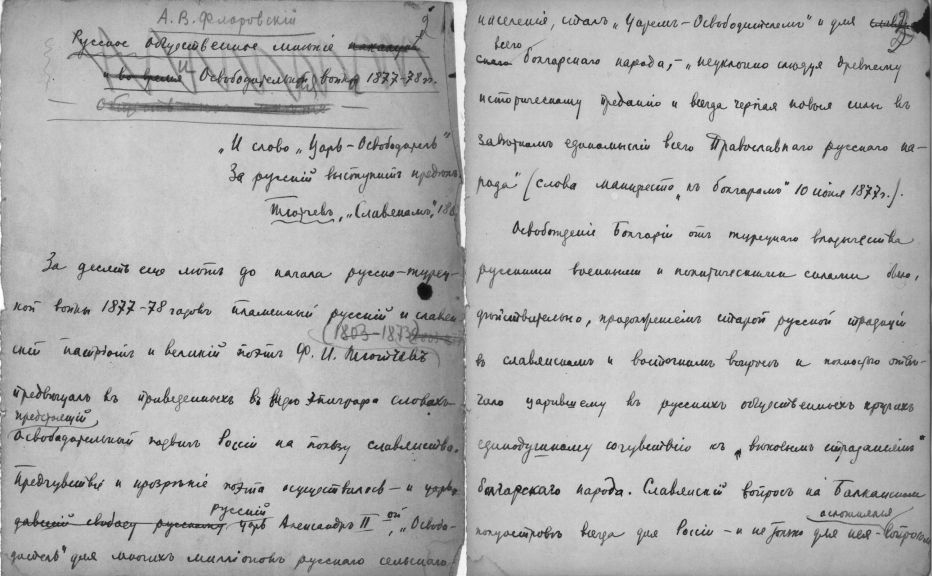 А. В. Флоровскій
Русское общественное мнѣніе
и во время Освободительной войны 1877-78 гг.
"И слово "Царь-Освободитель"
За русскій выступитъ предѣлъ.
Тютчевъ, "Славянамъ", 18
За десять еще лѣтъ до начала русско-турец-
кой войны 1877-78 годовъ пламенный русскій и славян
(1803-1873)
скій патріотъ и великій поэтъ Ф. И. Тютчевъ
предвѣщалъ въ приведенныхъ въ видѣ эпиграфа словахъ
предстоящій
Освободительный подвигъ Россіи на пользу славянства.
Предчувствіе и прозрѣніе поэта осуществилось – и царь,
русскій
давшій свободу русскому царь Александръ II ой, "Освобо-
дитель" для многихъ милліоновъ русскаго сельскаго
2
населенія, сталъ "Царемъ-Освободителемъ" и для
всего
болгарскаго народа, – "неуклонно слѣдуя древнему
историческому преданію и всегда черпая новыя силы въ
завѣтномъ единомысліи всего Православнаго русскаго на-
рода" (слова манифеста "къ болгарамъ" 10 іюня 1877 г.).
Освобожденіе Болгаріи отъ турецкаго владычества
русскими военными и политическими силами было,
дѣйствительно, продолженіемъ старой русской традиціи
въ славянскомъ и восточномъ вопросѣ и полностью отвѣ-
чало царившему въ русскихъ общественныхъ кругахъ
единодушному сочувствію къ "вѣковымъ страданіямъ"
болгарскаго народа. Славянскій вопросъ на Балканскомъ
осложнялся
полуостровѣ всегда для Россіи – и не только для нея – вопросомъ